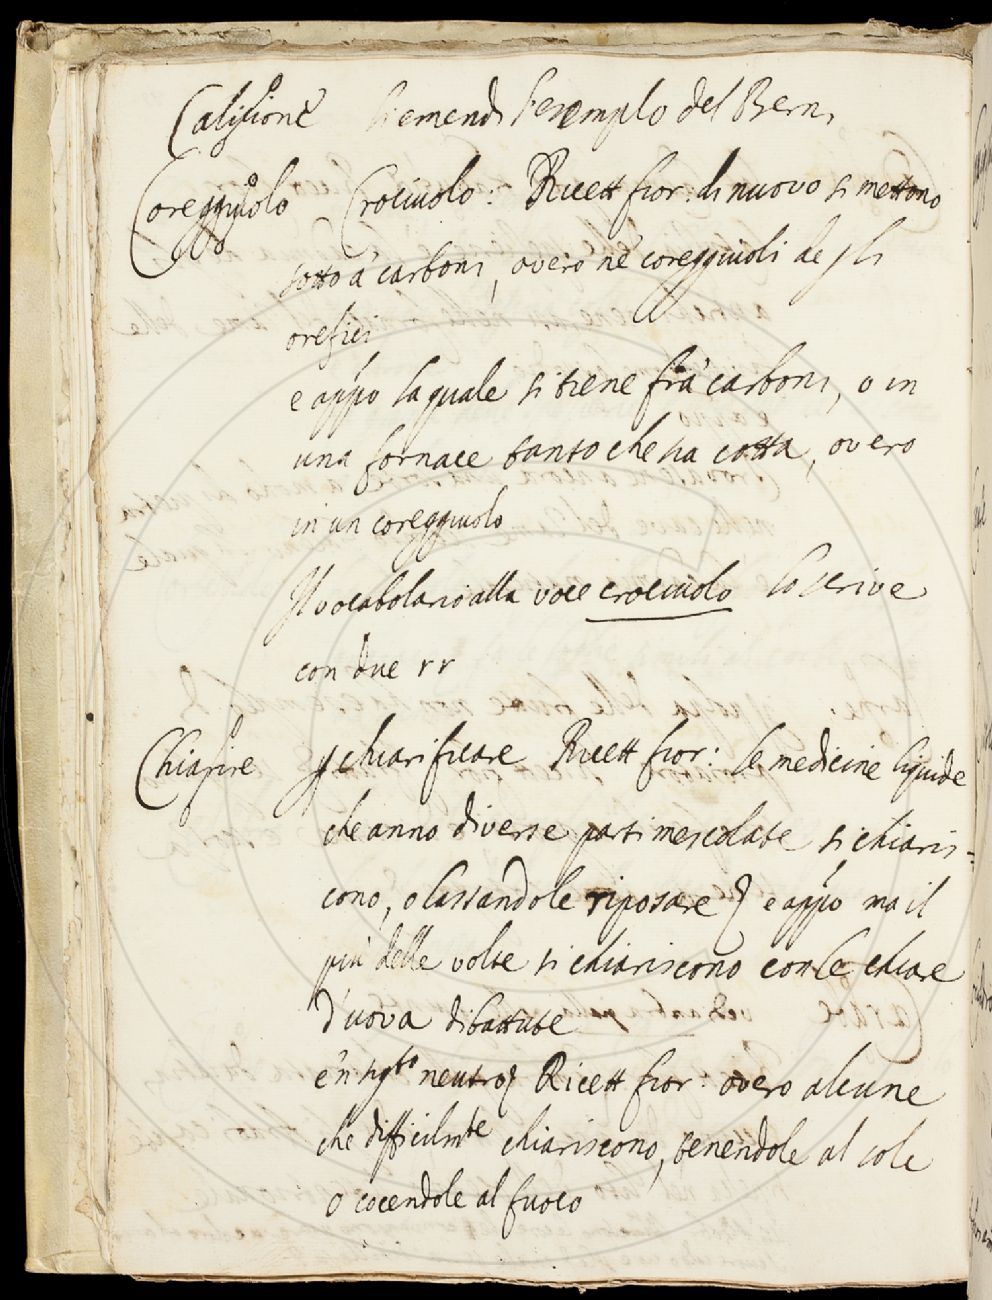 Caligione si emendi l'esemplo del Bern.
Coreggiuolo Crociuolo: Ricett fior: di nuovo si mettono
sotto a' carboni, overo ne' coreggiuoli degli
orefici
e app͂o la quale si tiene fra' carboni, o in
una fornace tanto che sia cotta, overo
in un coreggiuolo
Il vocabolario alla voce crociuolo lo scrive
con due rr
Chiarire p chiarificare Ricett fior: le medicine liquide
che anno diverse parti mescolate si chiaris=
cono, o lassandole riposare e app͂o ma il
più delle volte si chiariscono con le chiare
d'uova dibattute
è'n sig.to neutro Ricett fior: overo alcune
che difficilmte chiariscono, tenendole al sole
o cocendole al fuoco